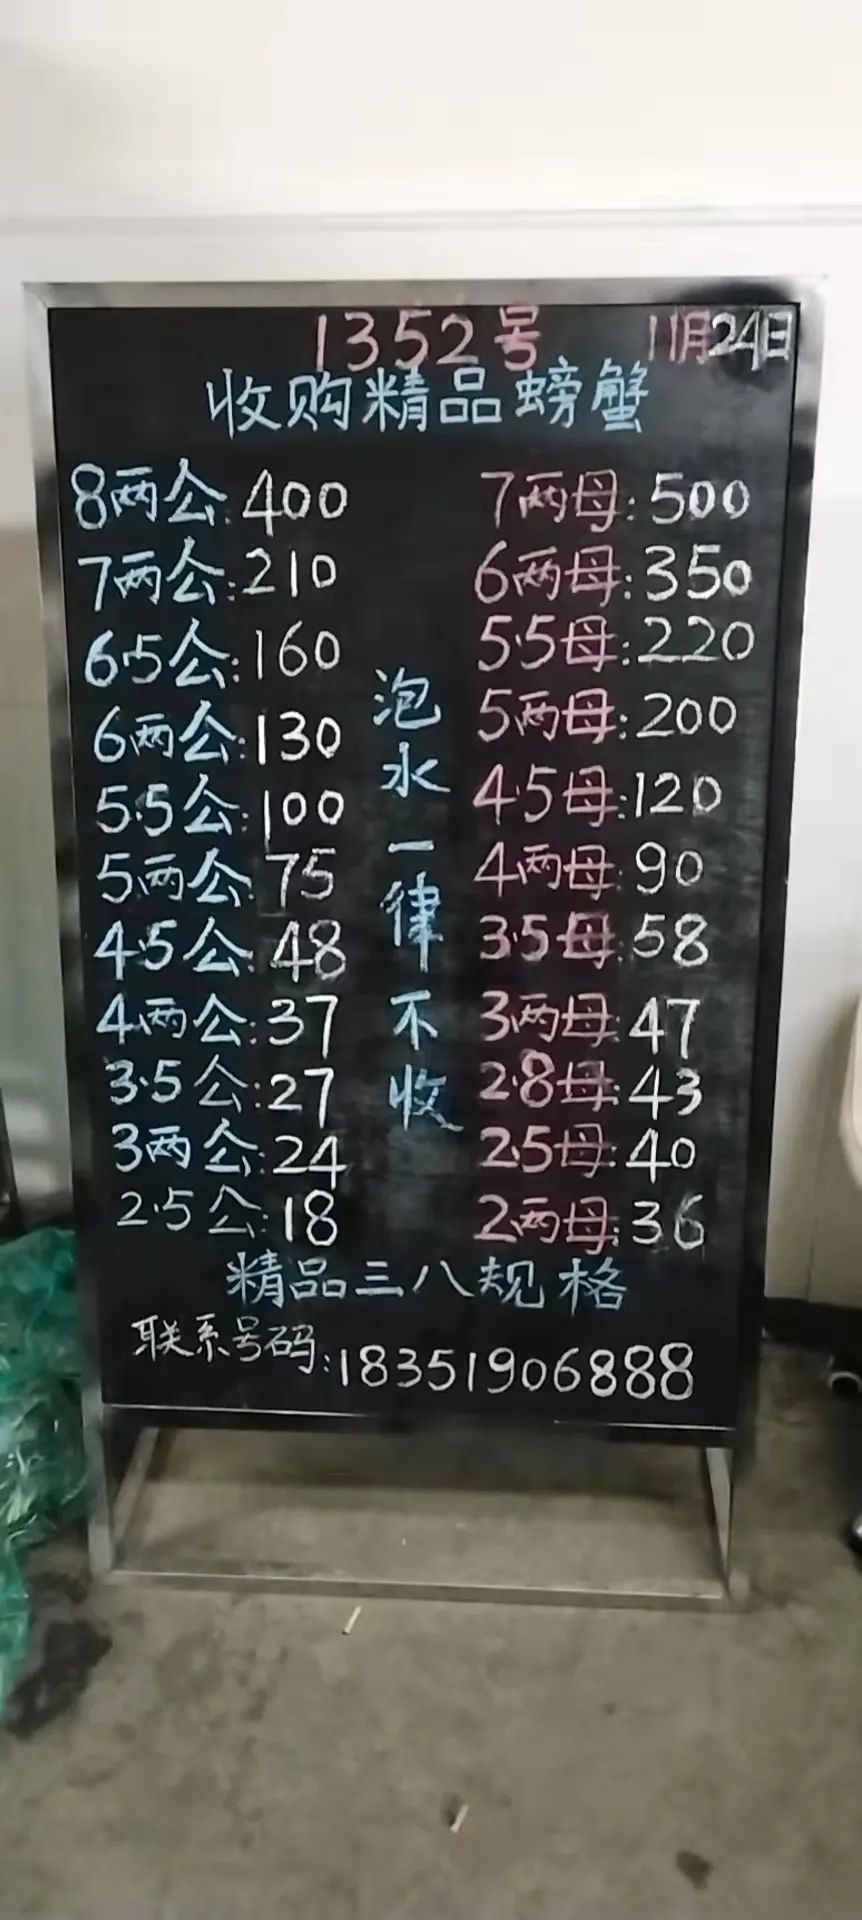 1352号 11月24日
收购精品螃蟹
8两公:400
7两公:210
6.5公:160
6两公:130
5.5公:100
5两公:75
4.5公:48
4两公:37
3.5公:27
3两公:24
2.5公:18
泡水一律不收
7两母:500
6两母:350
5.5母:220
5两母:200
4.5母:120
4两母:90
3.5母:58
3两母:47
2.8母:43
2.5母:40
2两母:36
精品三八规格
联系号码:18351906888